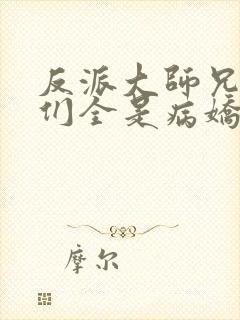 反派大師兄
们全是病嬌
摩尔